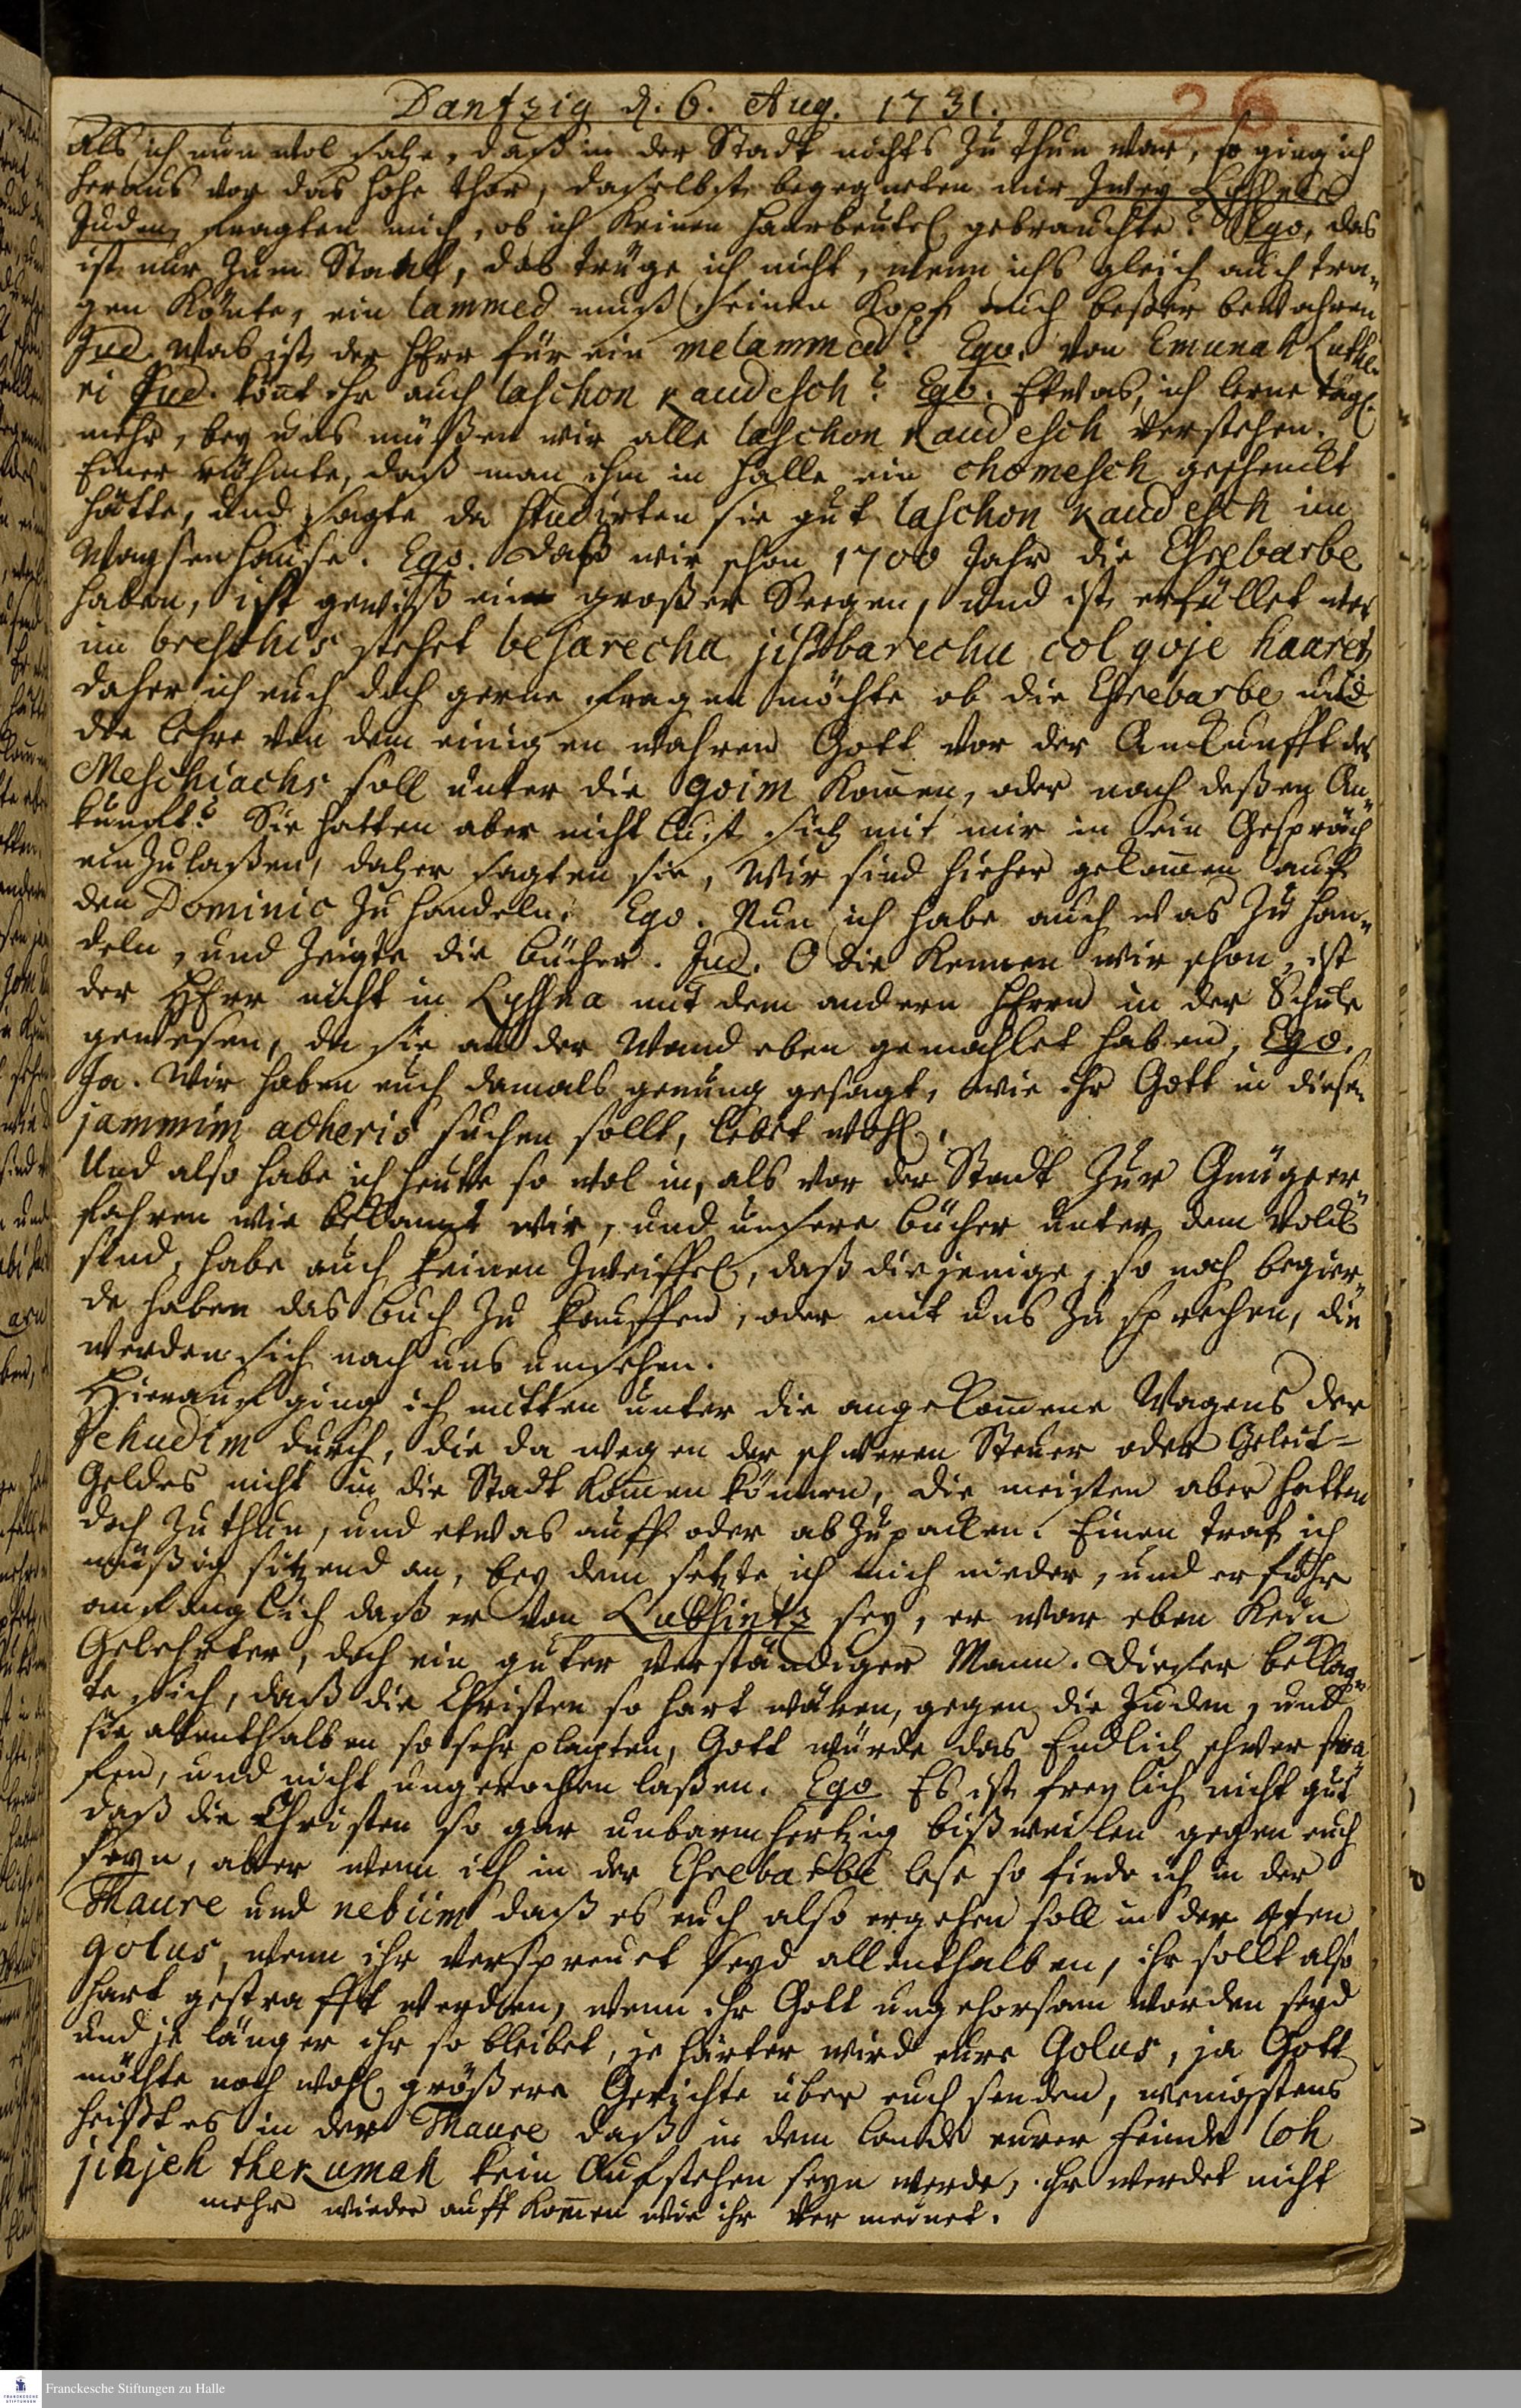 Dantzig d. 6. Aug. 1731.
26
Als ich nun wol sahe, daß in der Stadt nichts zu thun war, so ging ich
heraus vor das hohe Thor, daselbst begegneten mir zwey Lyssner
Juden, fragten mich, ob ich keinen Haarbeutel gebrauchte? Ego, das
ist nur zum Staat, das trüge ich nicht, wenn ichs gleich auch tra-
gen könte, ein lammed muß seinen Kopf auch beßer bewahren
Jud. was ist der Herr für ein melammed? Ego. von Emunah Luthe-
ri Jud. könt ihr auch laschon kaudesch? Ego. Etwas, ich lerne tägl.
mehr, bey uns müßen wir alle laschon kaudesch verstehen.
Einer rühmte, daß man ihm in Halle ein chomesch geschenckt
hätte, und sagte da studirten sie gut laschon kaudesch im
Waysenhause. Ego. Daß wir schon 1700 Jahr die Esrebarbe
haben, ist gewiß ein großer Seegen, und ist erfüllet was
im breschis stehet besarecha jisbarechu col goje haaretz
daher ich euch doch gerne fragen möchte ob die Esrebarbe und
die Lehre von dem einigen wahren Gott vor der Ankunfft des
Meschiachs soll unter die goim kommen, oder nach deßen An-
kunft? Sie hatten aber nicht Lust sich mit mir in ein Gespräch
einzulaßen, daher sagten sie, Wir sind hieher gekommen auf
den Dominic zu handeln. Ego. Nun ich habe auch was zu han-
deln, und zeigte die Bücher. Jud. O die kennen wir schon, ist
der Herr nicht in Lyssna mit dem andern Herrn in der Schule
gewesen, da sie an der Wand eben gemahlet haben, Ego.
Ja. Wir haben euch damals genung gesagt, wie ihr Gott in diesen
jammim acheris suchen sollt, lebet wohl.
Und also habe ich heute so wol in, als vor der Stadt zur Gnüge er-
fahren wie bekannt wir, und unsere Bücher unter dem Volck
sind, habe auch keinen Zweiffel, daß diejenige, so noch Begier-
de haben das Buch zu kauffen, oder mit uns zu sprechen, die
werden sich nach uns umsehen.
Hierauf ging ich mitten unter die angekommene Wagens der
Jehudim durch, die da wegen der schweren Steuer oder Geleit-
Geldes nicht in die Stadt kommen können, die meisten aber hatten
doch zu thun, und etwas auff- oder abzupacken. Einen traf ich
müßig sitzend an, bey dem setzte ich mich nieder, und erfuhr
anfänglich daß er von Lubschietz sey, er war eben kein
Gelehrter, doch ein guter verständiger Mann. Dieser beklag-
te sich, daß die Christen so hart wären, gegen die Juden, und
sie allenthalben so sehr plagten, Gott würde das Endlich schwer stra-
fen, und nicht ungerochen laßen. Ego Es ist freylich nicht gut
daß die Christen so gar unbarmhertzig bißweilen gegen euch
seyn, aber wenn ich in der Esrebarbe lese so finde ich in der
Thaure und nebiim daß es euch also ergehen soll in der 4ten
golus, wenn ihr verstreuet seyd allenthalben, ihr sollt also
hart gestrafft werden, wenn ihr Gott ungehorsam worden seyd
und je länger ihr so bleibet, je härter wird eure Golus, ja Gott
möchte noch wohl größere Gerichte über euch senden, wenigstens
heißt es in der Thaure daß in dem Lande eurer Feinde loh
jihjeh thekumah kein Aufstehen seyn werde, ihr werdet nicht
mehr wieder auff kommen wie ihr vermeinet.
Franckesche Stiftungen zu Halle